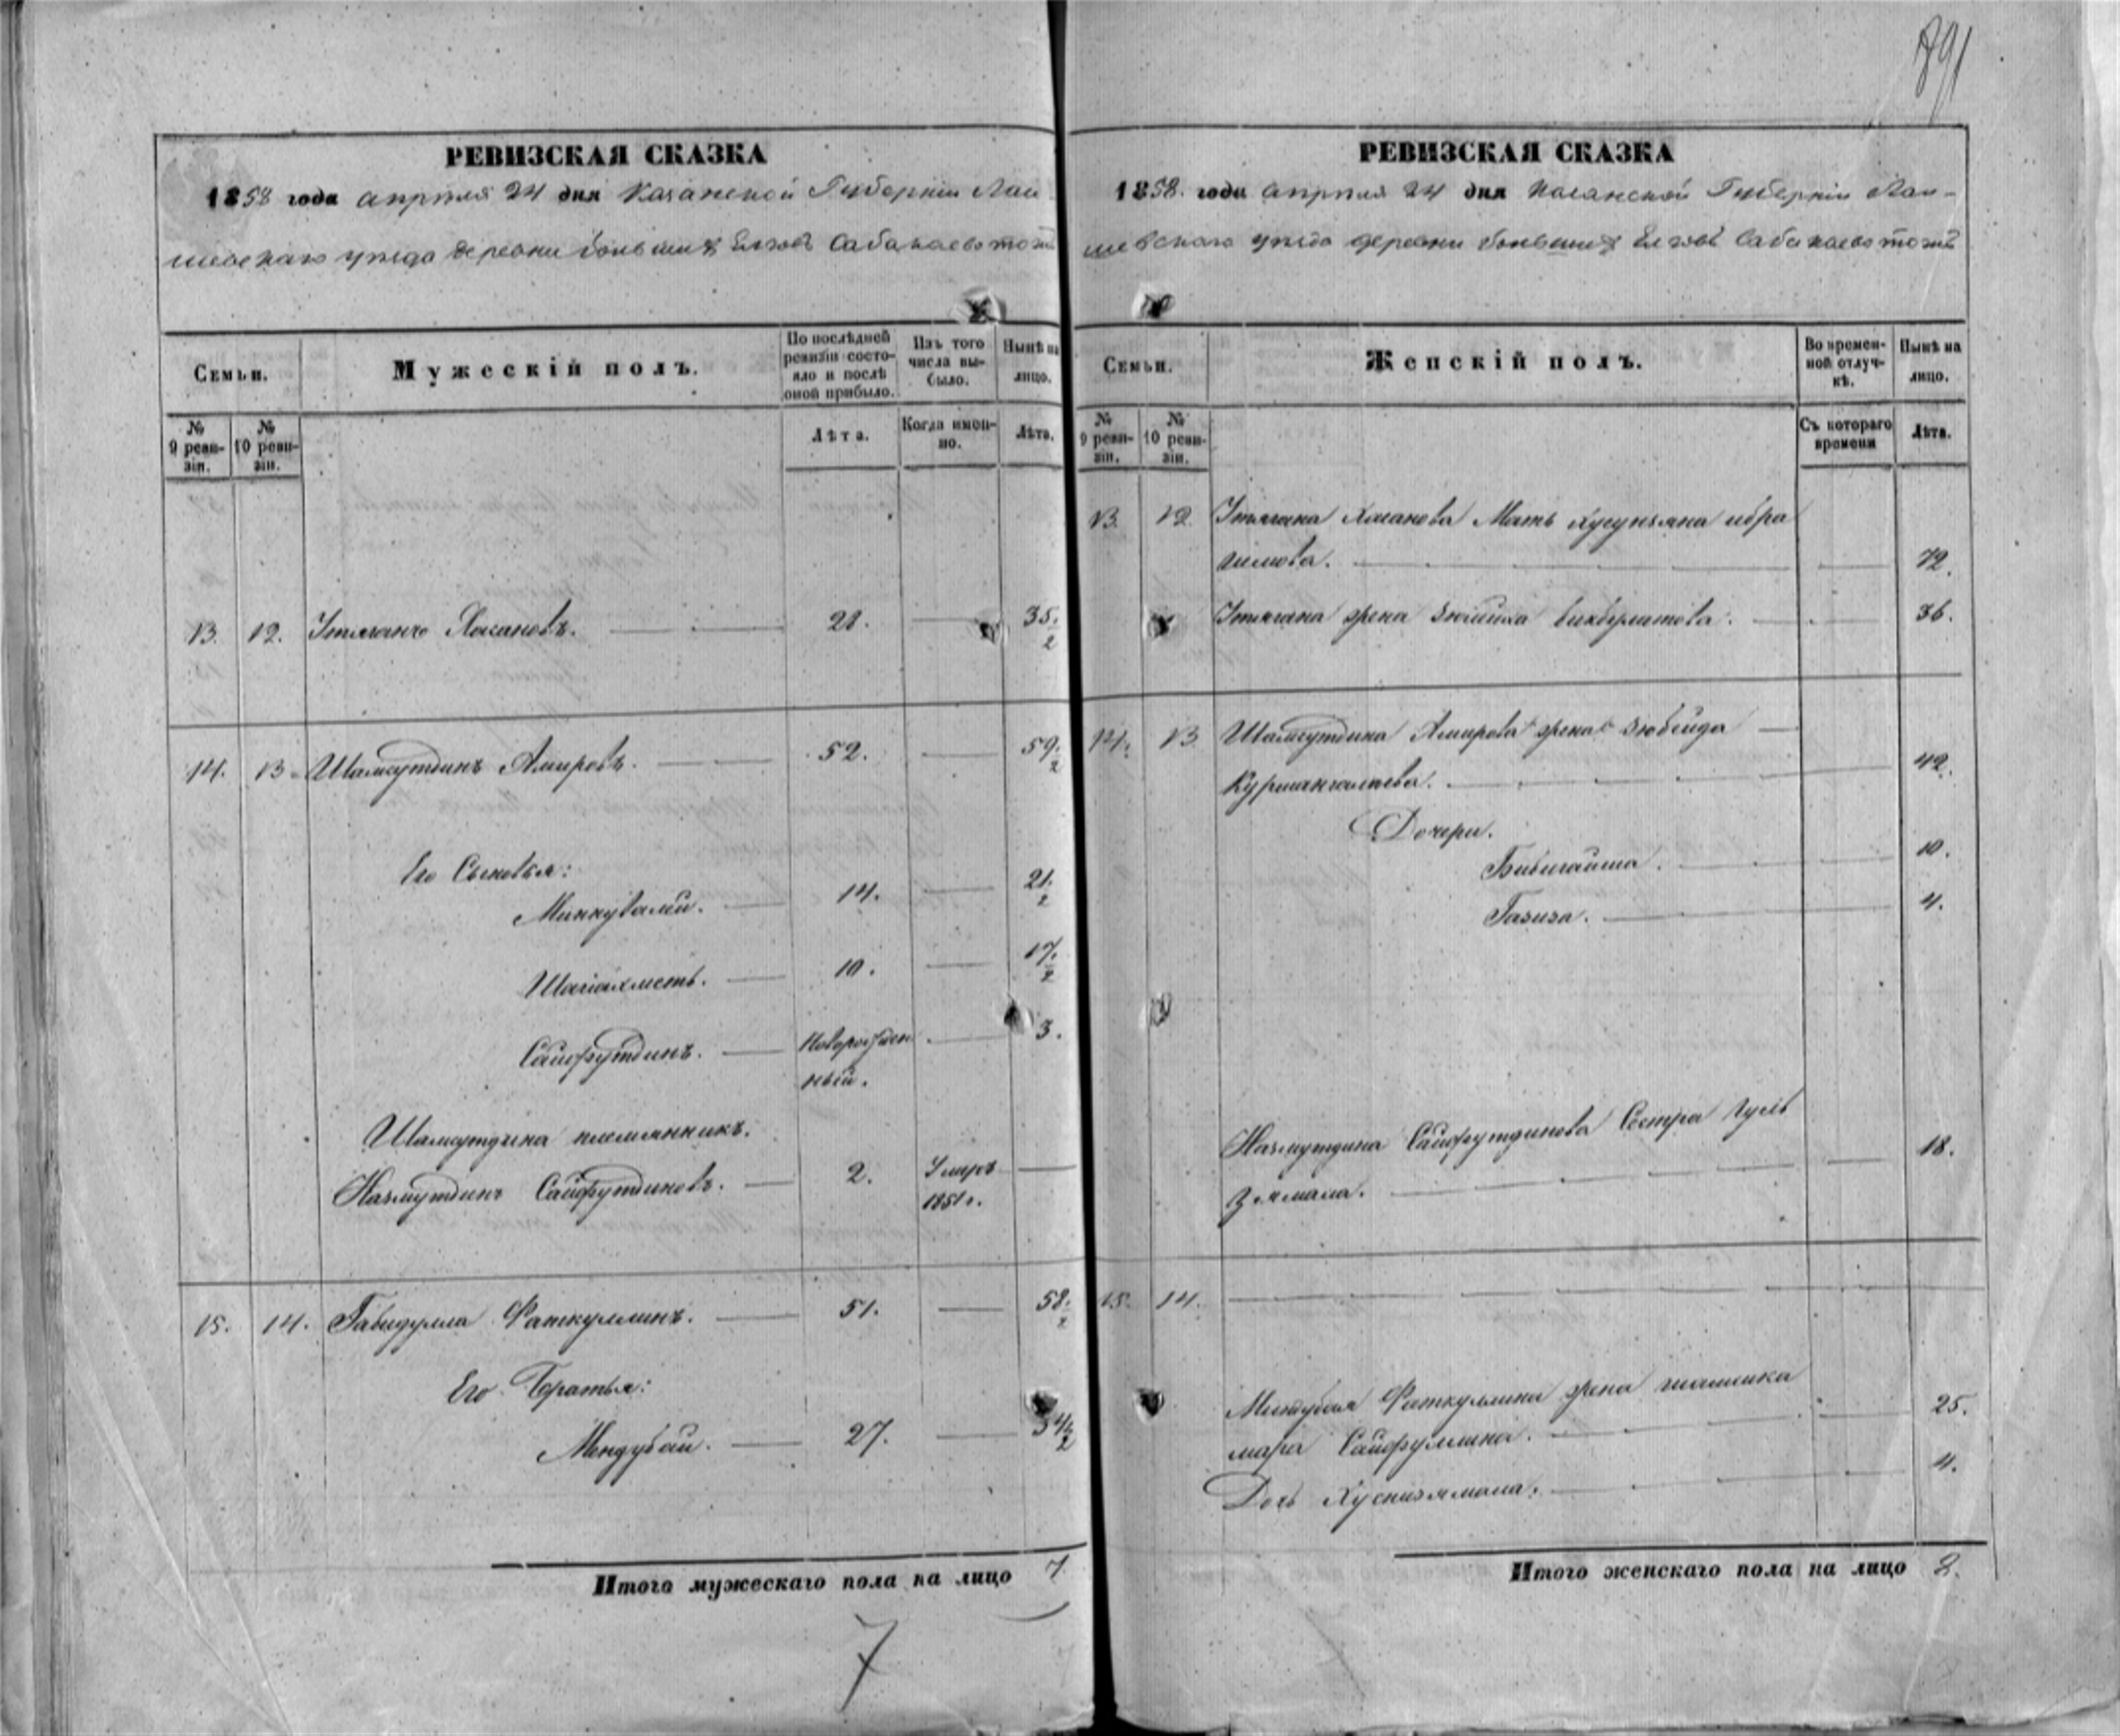 891
РЕВИЗСКАЯ СКАЗКА
1858 года апреля 24 дня Казанской Губерніи Лаи
шевскаго уезда деревни большихъ Елговъ Сабакаево тожъ
Семьи.
Мужескій полъ.
По послѣдней ревизіи состояло и послѣ оной прибыло.
Изъ того числа выбыло.
Нынѣ на лицо.
№ 9 ревизіи.
№ 10 ревизіи.
Лѣта.
Когда именно.
Лѣта.
13. 12. Утяганъ Хасановъ. 21. 35/2
14. 13 Шамсутдинъ Амировъ. 52. 59/2
Его Сыновья:
Миннували. 14. 21/2
Шагіахметъ. 10. 17/2
Сайфутдинъ. Новорожден 3.
ный.
Шамсутдина племянникъ.
Назмутдинъ Сайфутдиновъ. 2. Умеръ
1851 г.
15. 14. Габидулла Фаткуллинъ. 51. 58/2
Его Братья:
Мендубай. 27. 34/2
Итого мужескаго пола на лицо 7
7
РЕВИЗСКАЯ СКАЗКА
1858. года апреля 24 дня Казанской Губерніи Лаи-
шевскаго уезда деревни большихъ Елговъ Сабакаево тожъ
Семьи.
Женскій полъ.
Во временной отлучкѣ.
Нынѣ на лицо.
№ 9 ревизіи.
№ 10 ревизіи.
Съ котораго времени
Лѣта.
13. 12. Утягана Хасанова Мать Хусунзяна ибра
гимова. 72.
Утягана жена Бикбулатова. 36.
14. 13 Шамсутдина Амирова жена Зюбейда
Курмангалеева. 42.
Дочери.
Бибигайша. 10.
Газиза. 4.
Назмутдина Сайфутдинова Сестра Гуль
зямала. 18.
15. 14.
Миндубая Фаткуллина жена
Сайфуллина. 25.
Дочь Хуснизямала. 4.
Итого женскаго пола на лицо 8.